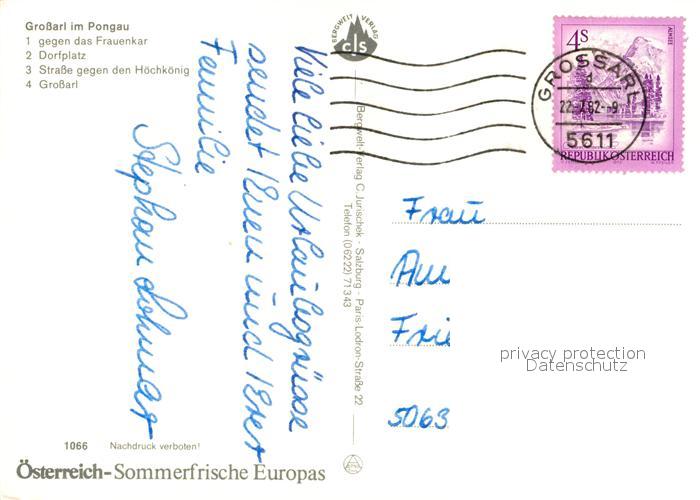 Großarl im Pongau
1 gegen das Frauenkar
2 Dorfplatz
3 Straße gegen den Höchkönig
4 Großarl
Viele liebe Urlaubsgrüsse
sendet Ihnen und Ihrer
Familie
Stephan
BERGWELT VERLAG
cJs
Bergwelt-Verlag C. Jurischek - Salzburg - Paris-Lodron-Straße 22
Telefon (0 62 22) 7 13 43
4S
ALMSEE
REPUBLIK ÖSTERREICH
GROSSARL
d
5611
Frau
An
Frie
5063
privacy protection
Datenschutz
1066 Nachdruck verboten!
Österreich-Sommerfrische Europas